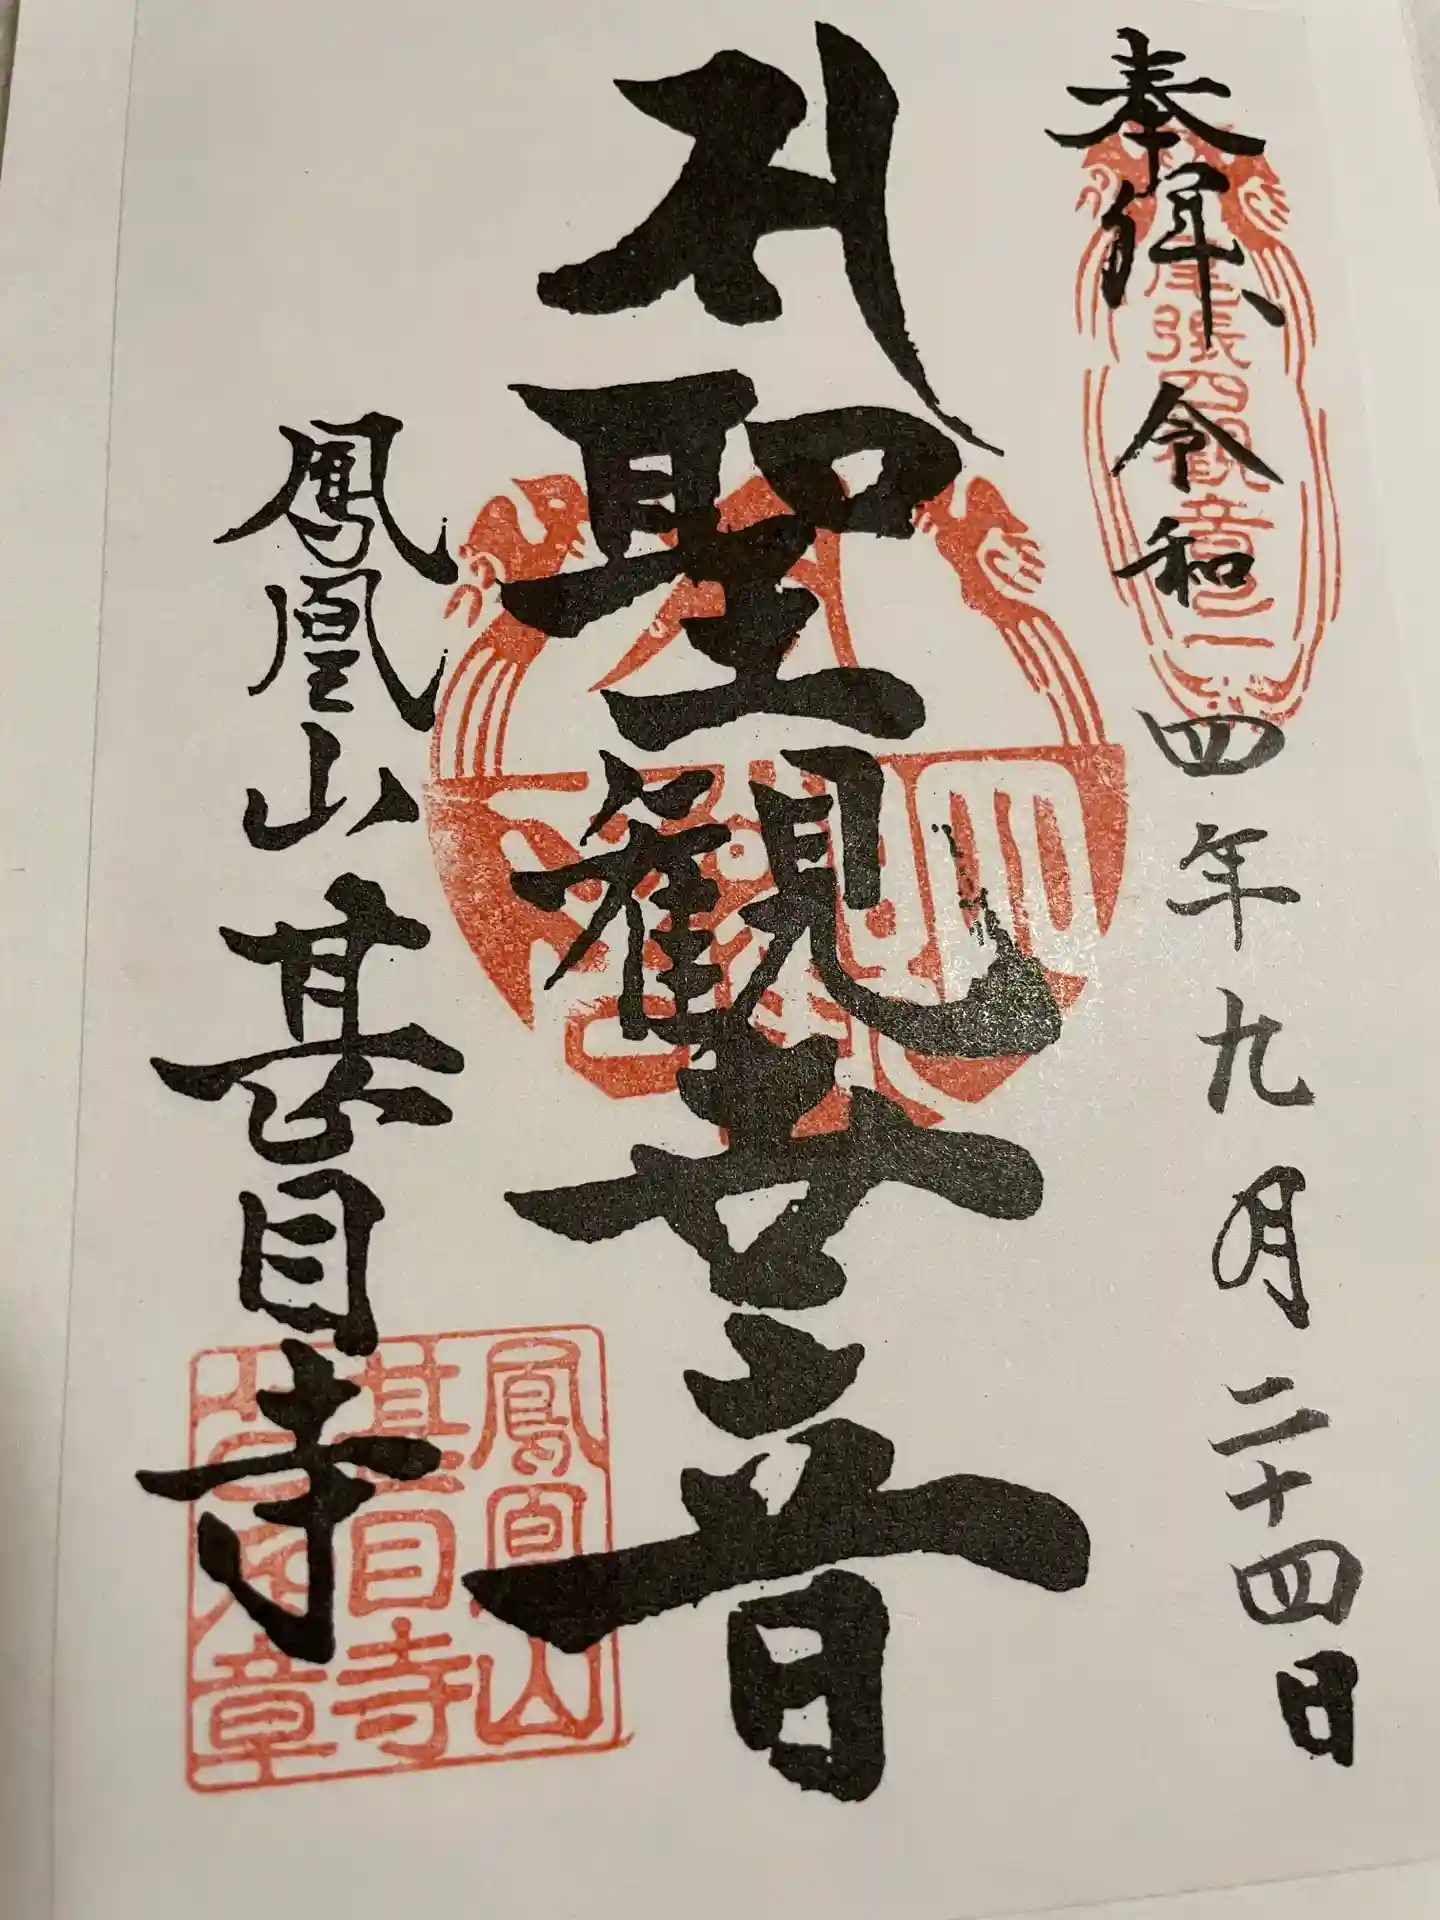 奉拝 令和四年九月二十四日
尾張四観音之一
聖観世音
鳳凰山甚目寺
鳳凰山
甚目寺